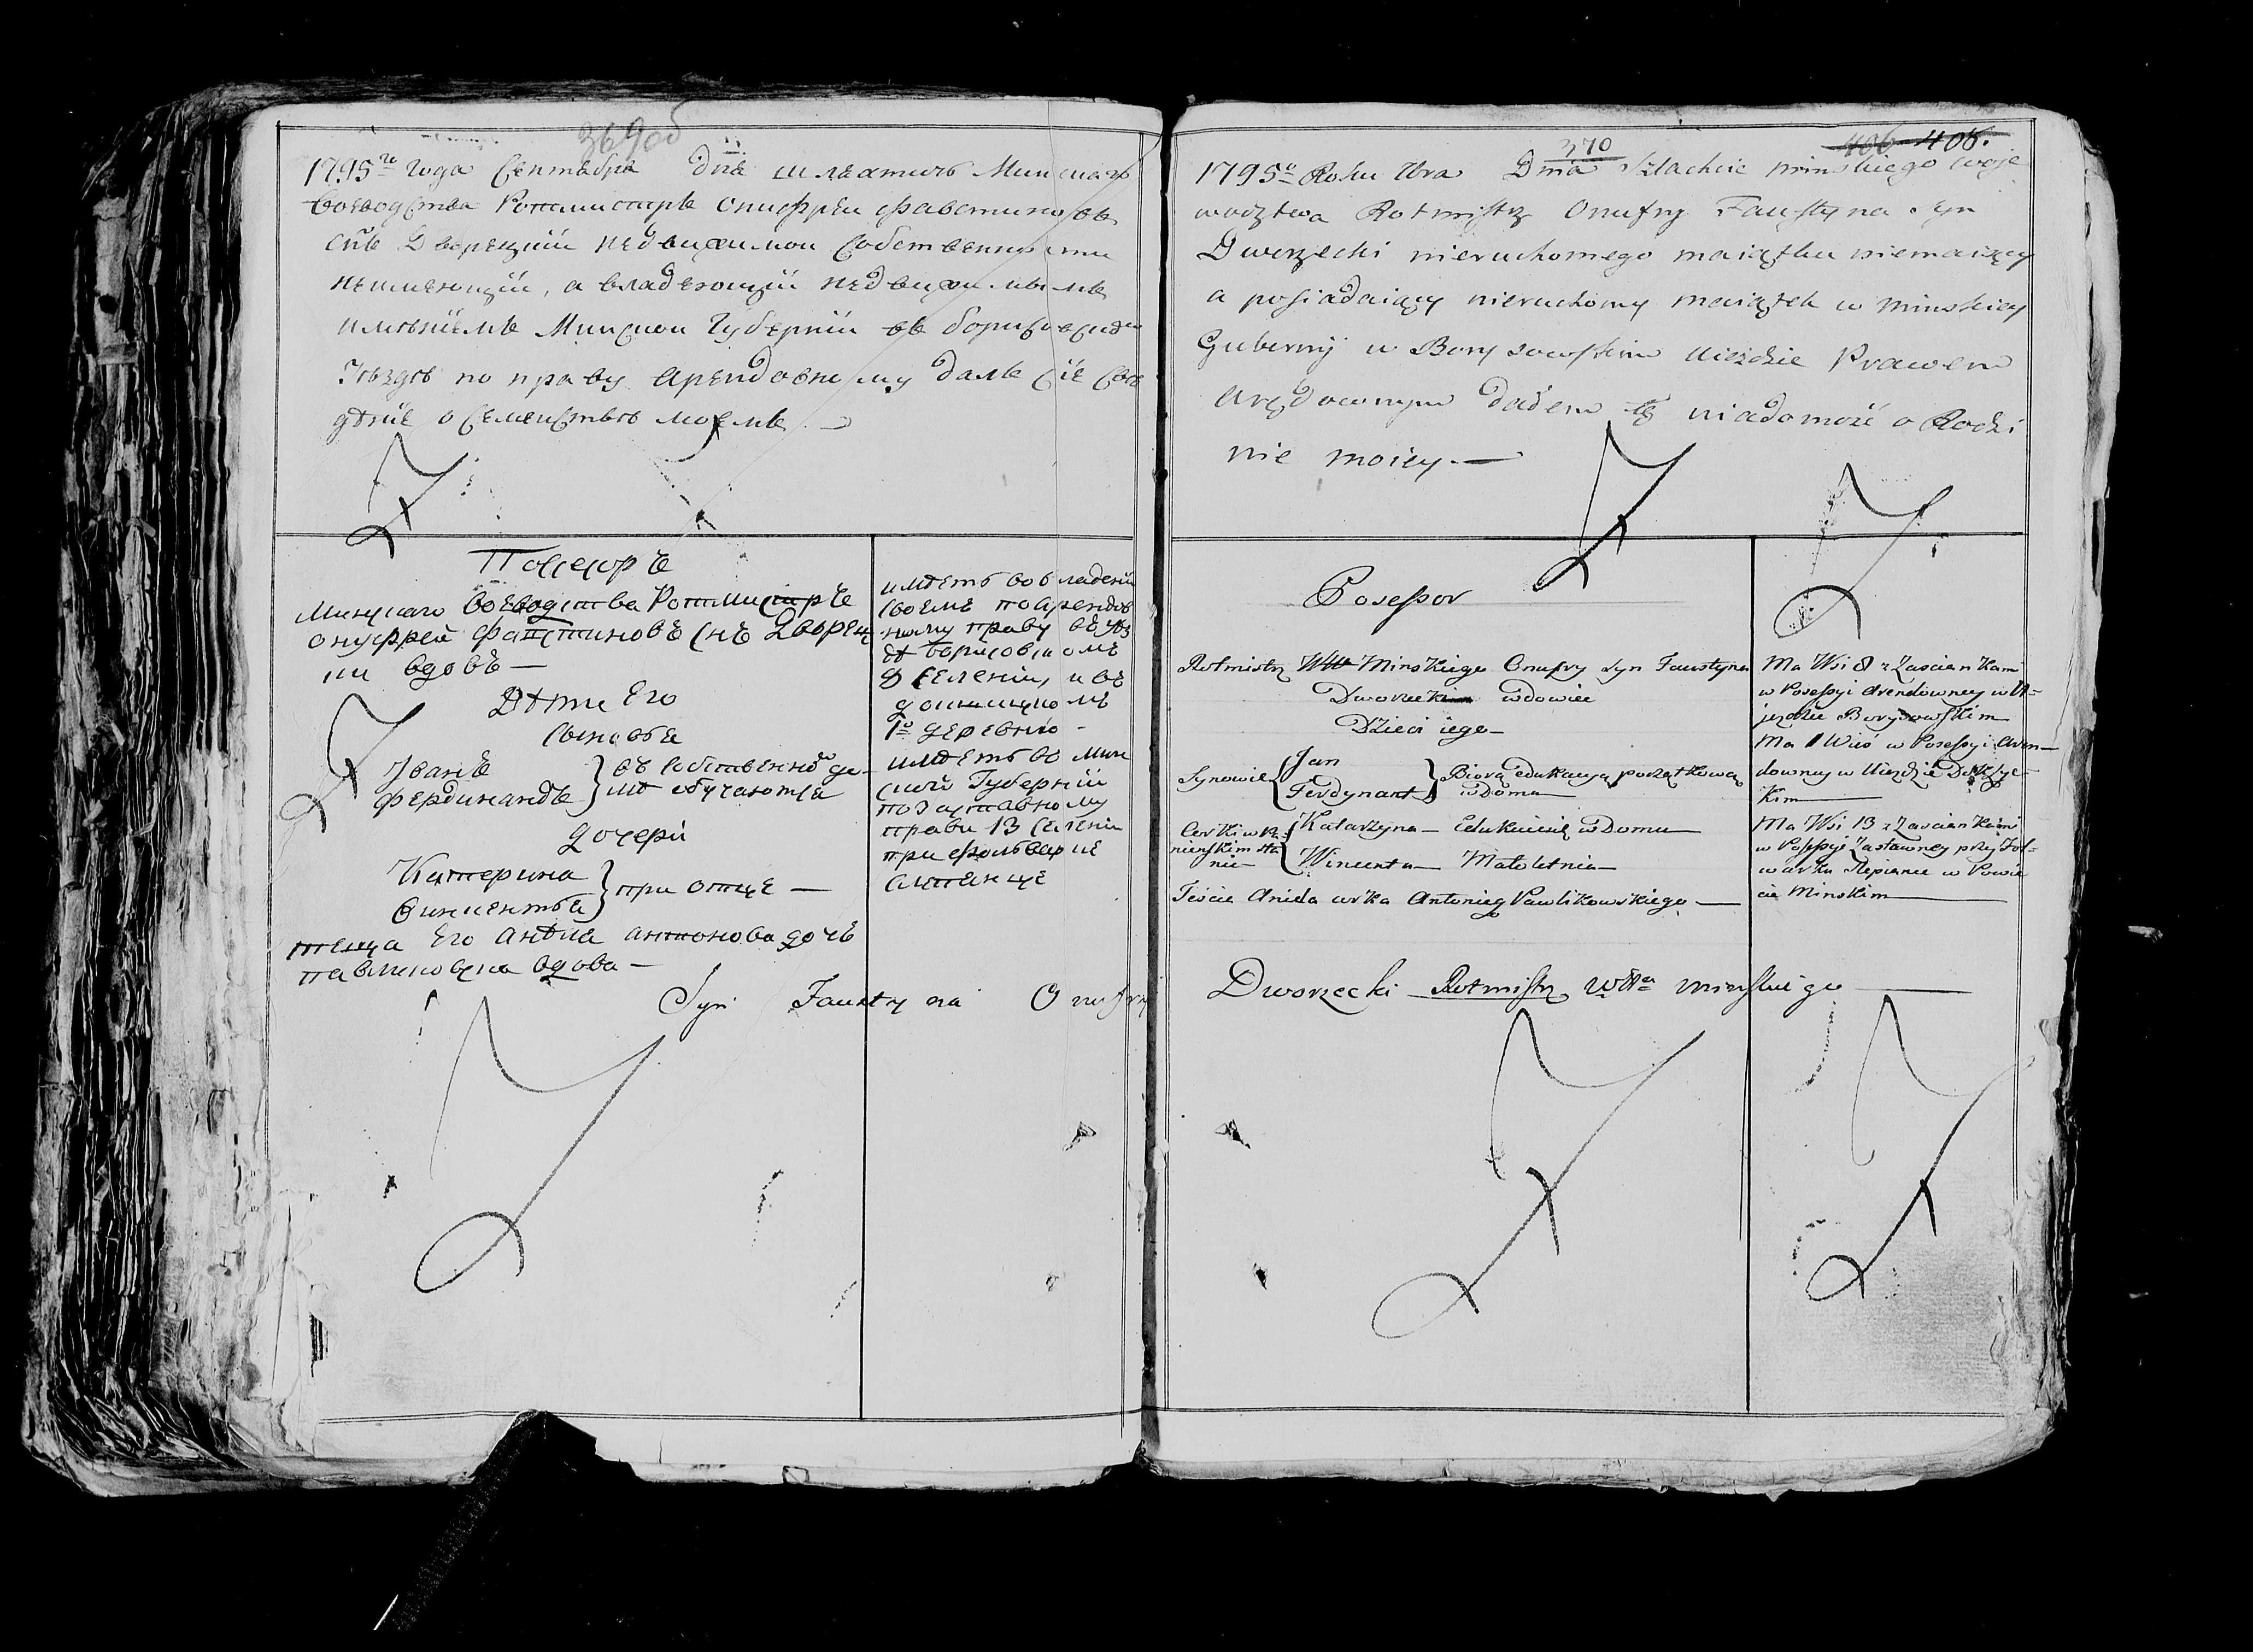 369об
1795го года Сентября дня шляхтичъ Минскаго
воеводства Ротмистръ Онифрей Фавстиновъ
снъ Дворецкий недвижимой собственности
неимеющій, а владеющій недвижимымъ
имѣніемъ Минской Губерніи въ Борисовскомъ
уѣздѣ по праву арендовному даю сіе све
дѣніе о семействѣ моемъ
Посесоръ
Минскаго воеводства Ротмистръ
Онуфрей Фаустиновъ снъ Дворец
ки вдовъ —
Дѣти Его
Сыновья
Иванъ
Фердинандъ
въ собственномъ до-
мѣ обучаются
дочери
Катерина
Винцентъа
при отце —
теща Его Анѣла Антонова дочь
Павликовска вдова —
имѣетъ во владеніи
своемъ по арендов
ному праву въ уѣз
дѣ Борисовскомъ
8 селеній, и въ
докшицкомъ
1ю деревню -
имѣетъ во Мин
ской Губерніи
по заставному
праву 13 селеній
при фольварке
Слѣпянце
Syn Faustyna Onufry
370
406 406.
1795o Roku 7bra Dnia Szlachcic minskiego woje
wodztwa Rotmistrz Onufry Faustyna Syn
Dworzecki nieruchomego maiątku niemaiący
a posiadaiący nieruchomy maiątek w minskiey
Gubernij w Borysowskim Uiezdzie Prawem
Arędownym dałem tę wiadomość o Rodzi
nie moiey. —
Posessor
Rotmistrz Wtw Minskiego Onufry syn Faustyna
Dworzecki wdowiec
Dzieci iego —
Synowie
Jan
Ferdynant
Biorą edukacyą początkową
w Domu
Corki w Pa
nienskim sta
nie —
Katarzyna — Edukuiesię w Domu —
Wincenta — Małoletnia —
Teście Aniela corka Antoniego Pawlikowskiego —
Ma Wsi 8 z Zasciankami
w Posessyi Arendowney w U-
jezdzie Borysowskim
Ma 1 Wieś w Posessyi Aren-
downey w Uiezdzie Dokszyc-
kim —
Ma Wsi 13 z Zasciankami
w Possesyi Zastawney przy Fol-
warku Slepiance w Powie
cie Minskim —
Dworzecki Rotmistrz Wdtwa minskiego —